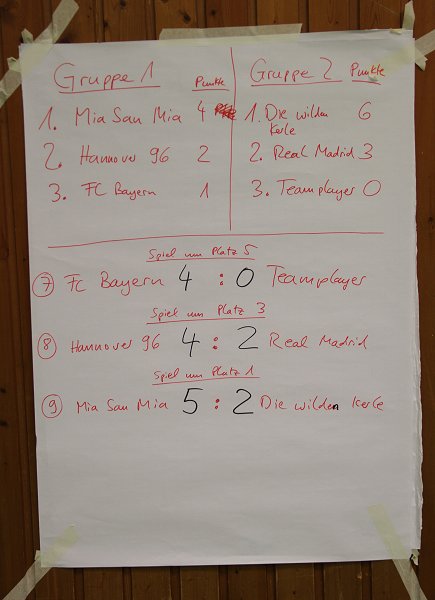 Gruppe 1 Punkte
1. Mia San Mia 4
2. Hannover 96 2
3. FC Bayern 1
Gruppe 2 Punkte
1. Die wilden Kerle 6
2. Real Madrid 3
3. Teamplayer 0
Spiel um Platz 5
7 FC Bayern 4 : 0 Teamplayer
Spiel um Platz 3
8 Hannover 96 4 : 2 Real Madrid
Spiel um Platz 1
9 Mia San Mia 5 : 2 Die wilden Kerle